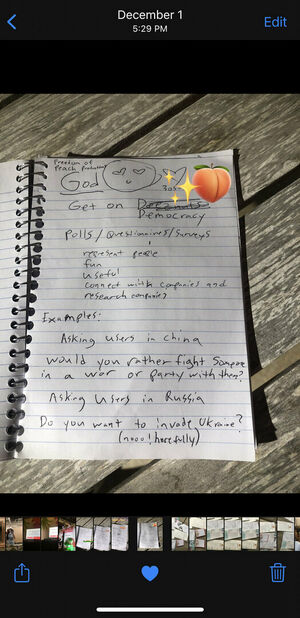 December 1
5:29 PM
Edit
Freedom of
Peach
God
305
Get on
Democracy
Polls / Questionnaires / Surveys
represent people
fun
useful
connect with companies and
research companies
Examples:
Asking users in china
would you rather fight Someone
in a war or party with them?
Asking Users in Russia
Do you want to invade Ukraine?
(nooo! hopefully)